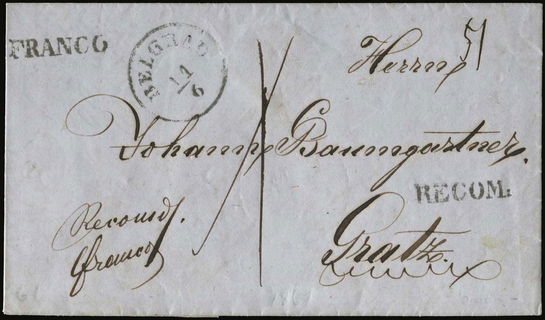 FRANCO
BELGRAD
14/6
Herrn
Johann Baumgartner.
RECOM:
Recomd.
franco
Gratz.